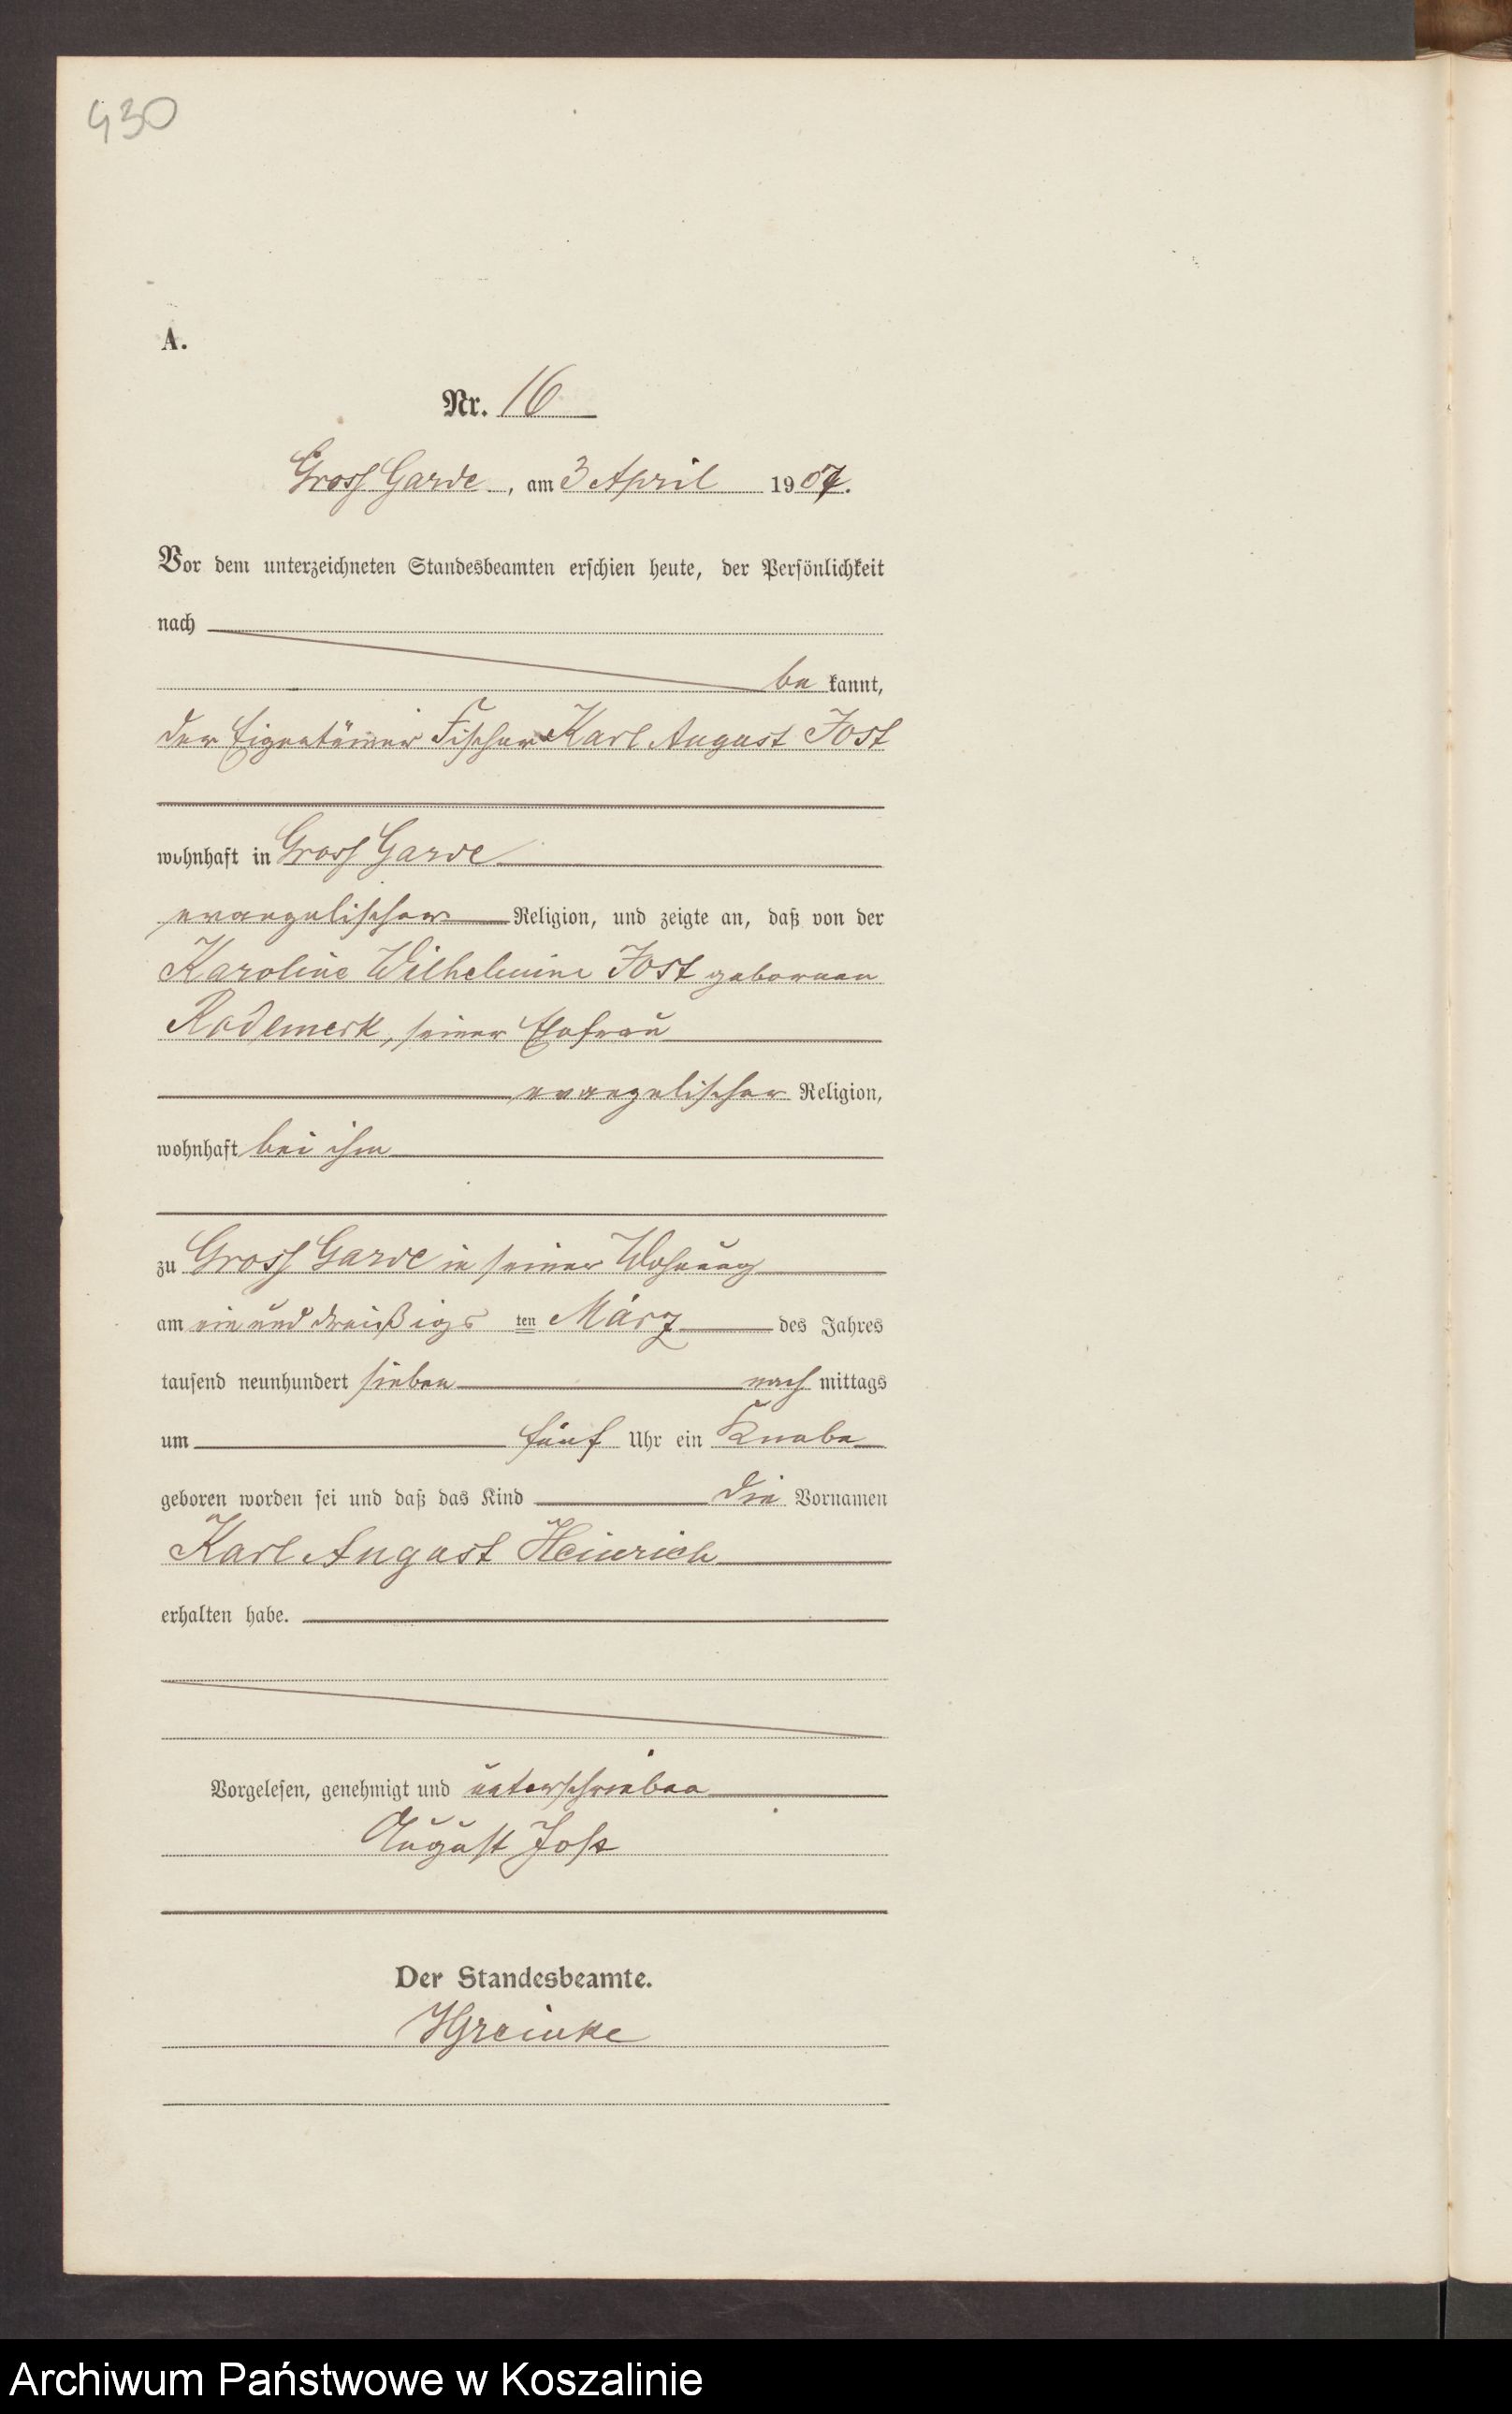 430
A.
Nr. 16
Gross Garde, am 3 April 1907.
Vor dem unterzeichneten Standesbeamten erschien heute, der Persönlichkeit
nach
be kannt,
der Eigentümer Fischer Karl August Jost
wohnhaft in Gross Garde
evangelischer Religion, und zeigte an, daß von der
Karoline Wilhelmine Jost geborenen
Rademerk, seiner Ehefrau
evangelischer Religion,
wohnhaft bei ihm
zu Gross Garde in seiner Wohnung
am ein und dreißigs ten März des Jahres
tausend neunhundert sieben nach mittags
um fünf Uhr ein Knabe
geboren worden sei und daß das Kind die Vornamen
Karl August Heinrich
erhalten habe.
Vorgelesen, genehmigt und unterschrieben
August Jost
Der Standesbeamte.
Archiwum Państwowe w Koszalinie